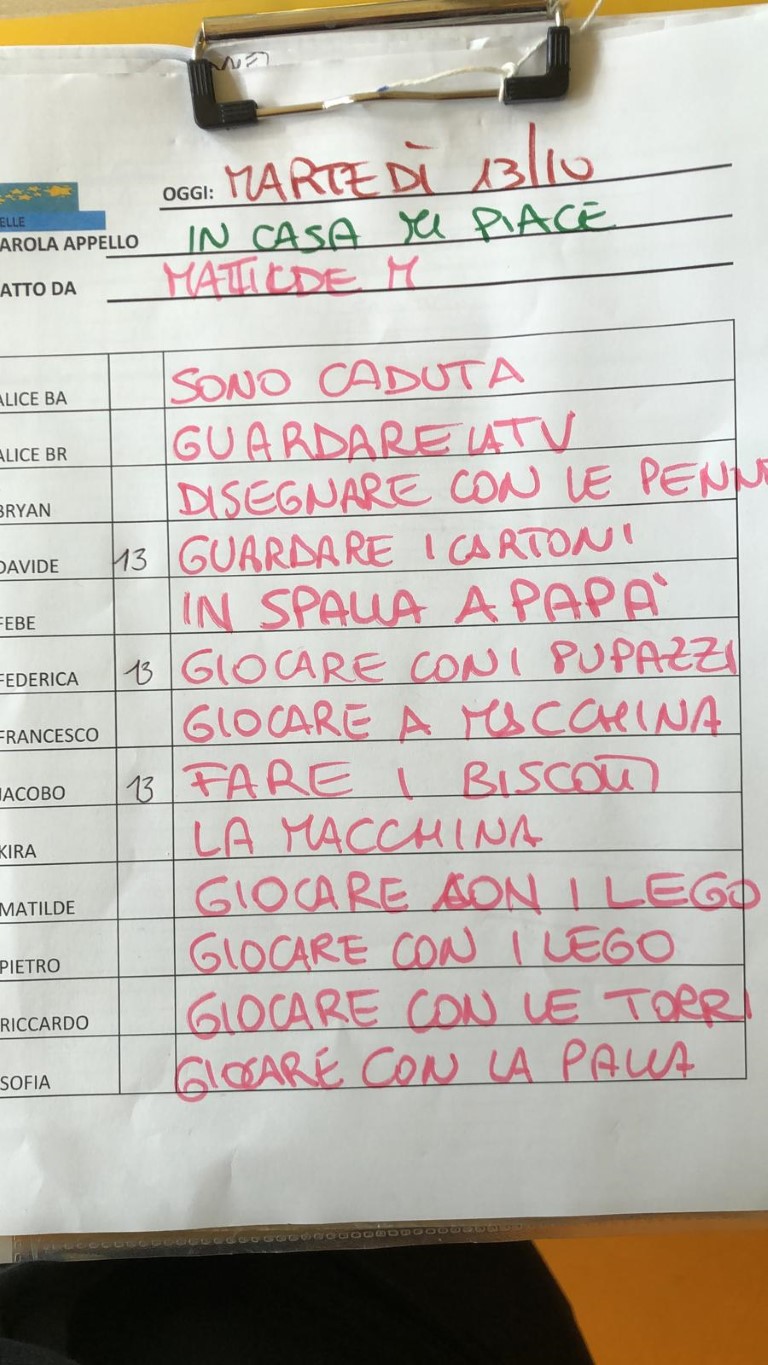 OGGI: MARTEDÌ 13/10
ELLE
AROLA APPELLO IN CASA MI PIACE
ATTO DA MATILDE M
ALICE BA SONO CADUTA
ALICE BR GUARDARE LA TV
BRYAN DISEGNARE CON LE PENN
DAVIDE 13 GUARDARE I CARTONI
FEBE IN SPALLA A PAPÀ
FEDERICA 13 GIOCARE CON I PUPAZZI
FRANCESCO GIOCARE A MACCHINA
IACOBO 13 FARE I BISCOTTI
KIRA LA MACCHINA
MATILDE GIOCARE CON I LEGO
PIETRO GIOCARE CON I LEGO
RICCARDO GIOCARE CON LE TORRI
SOFIA GIOCARE CON LA PALLA